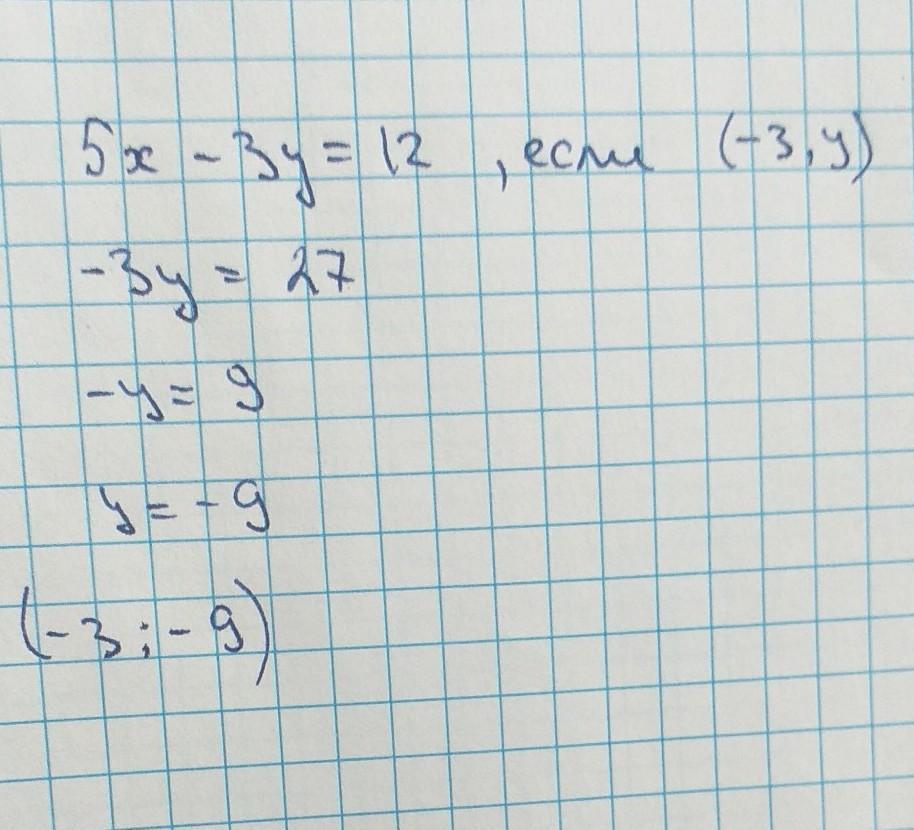 5x - 3y = 12 , если (-3, y)
-3y = 27
-y = 9
y = -9
(-3; -9)